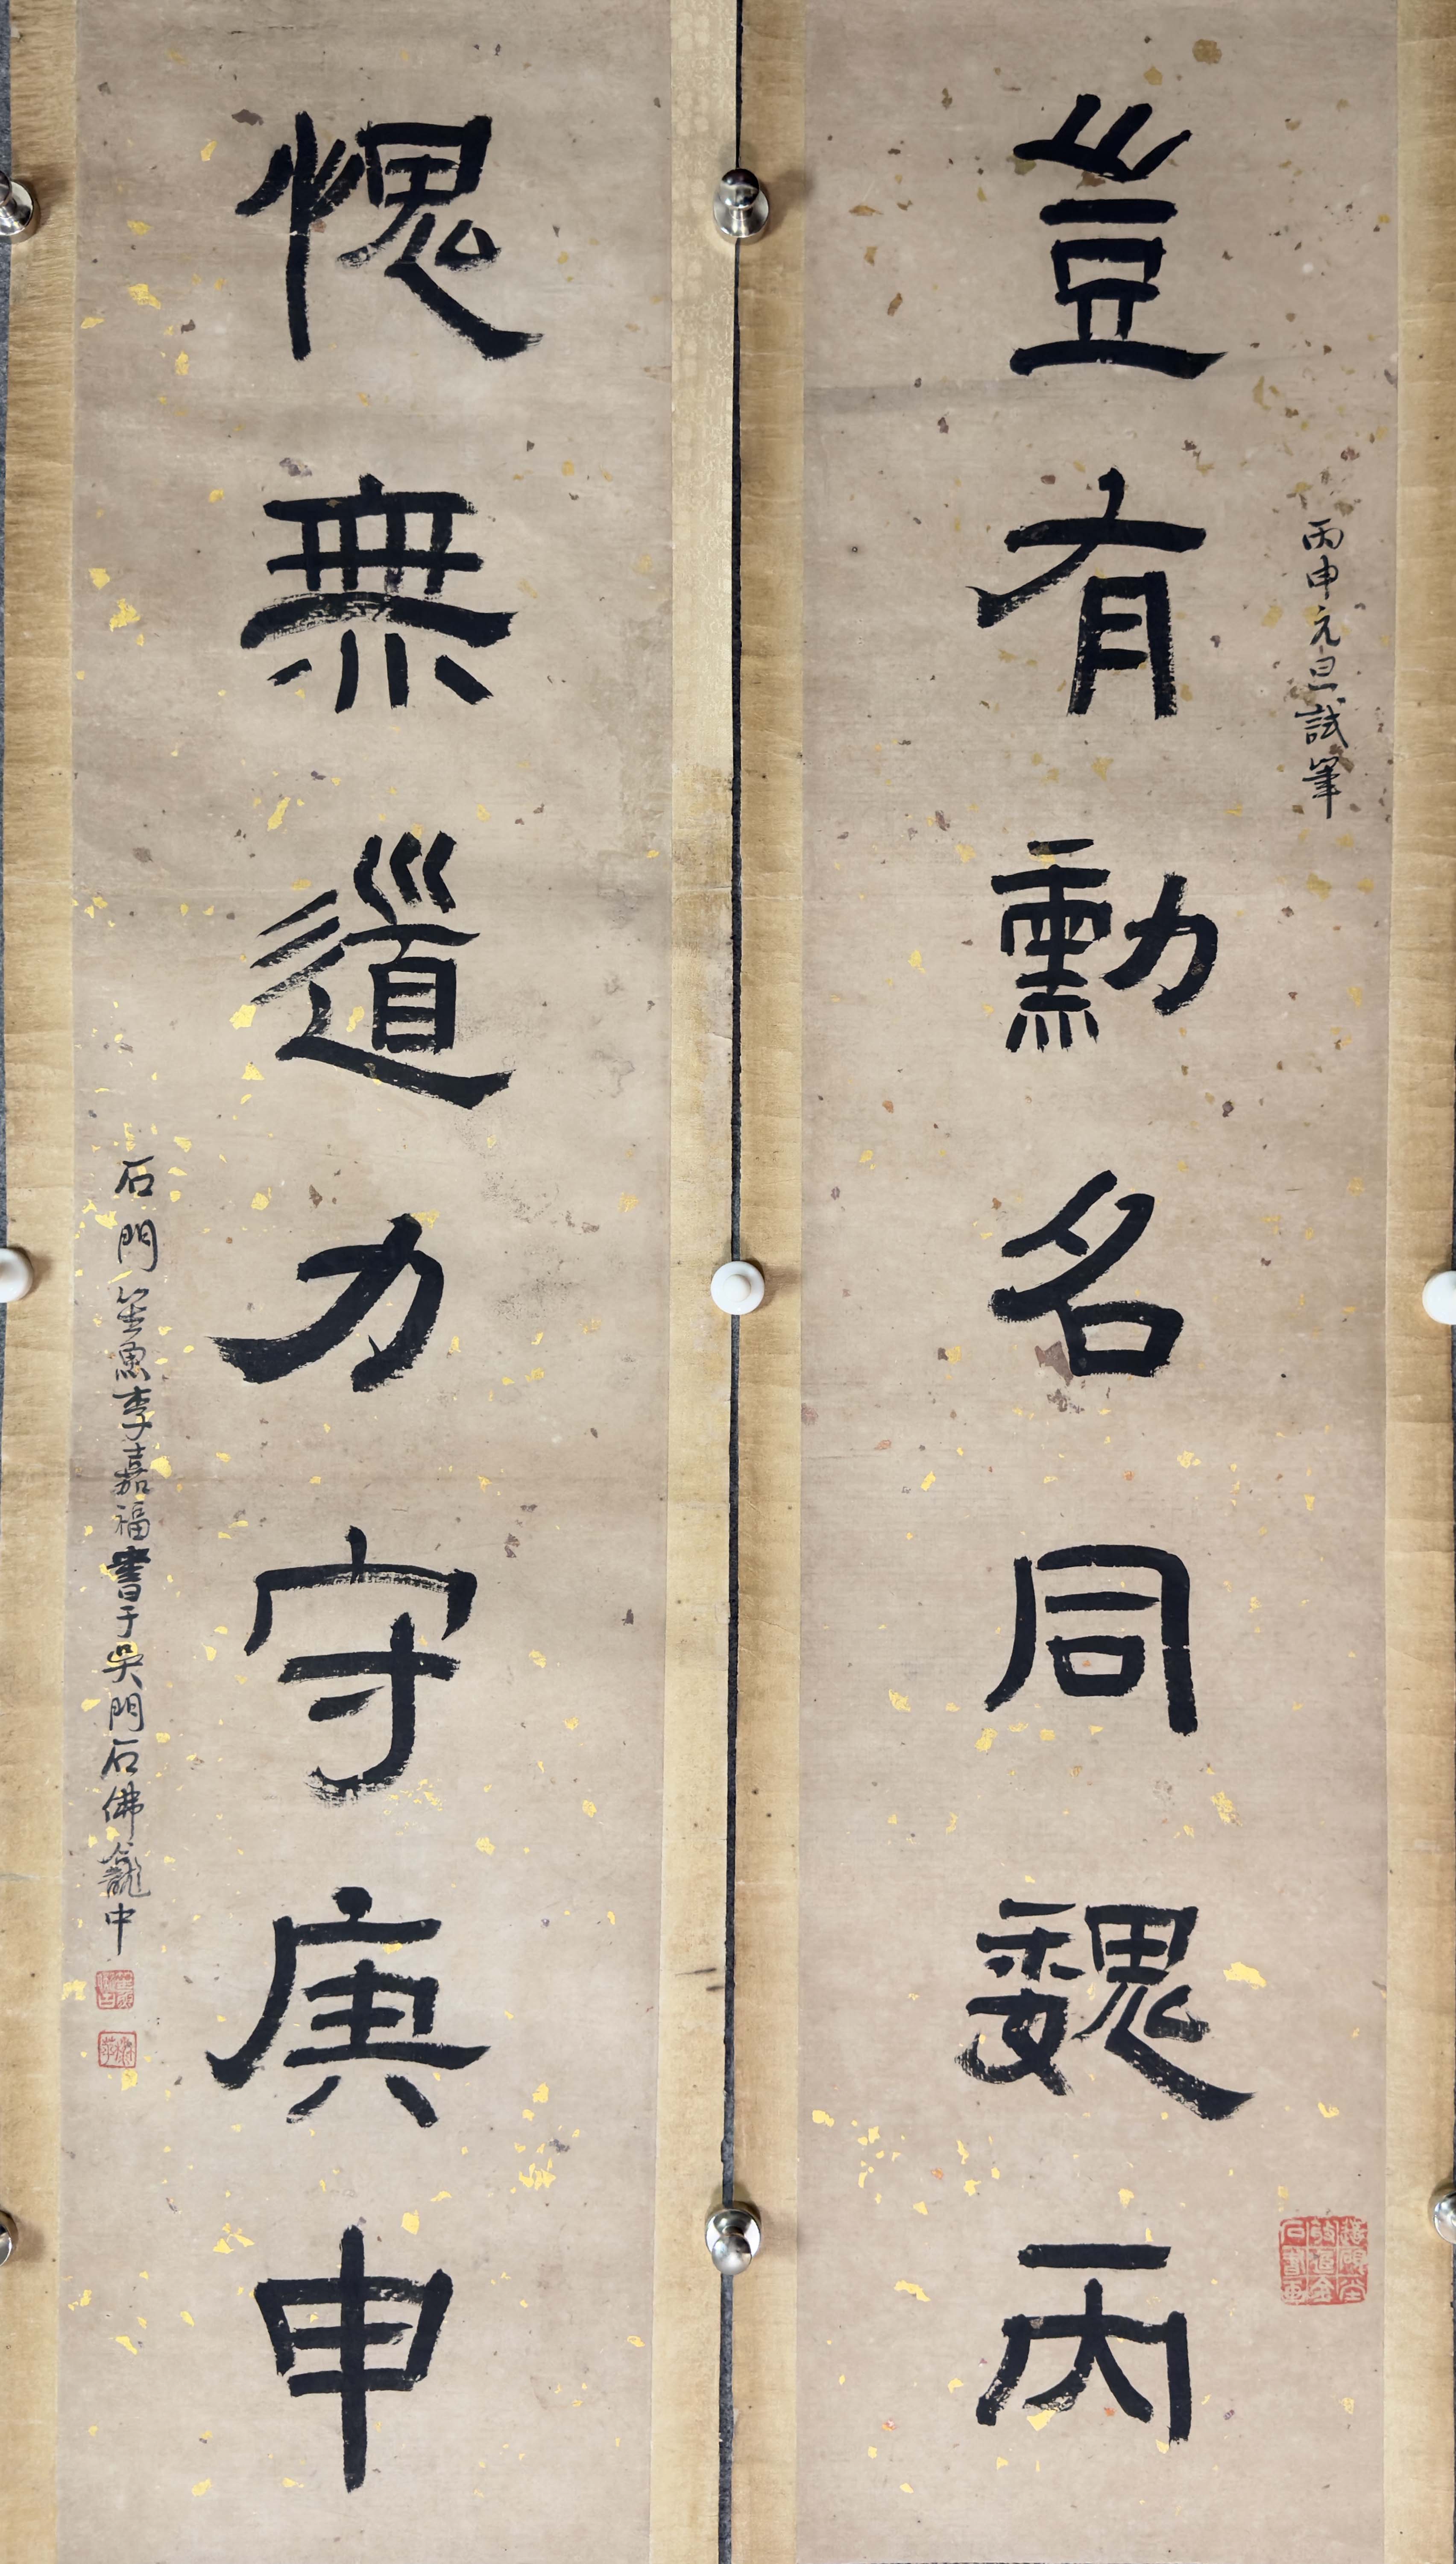 丙申元旦試筆
豈有勳名同魏丙
愧無道力守庚申
石門笙魚李嘉福書于吳門石佛龕中